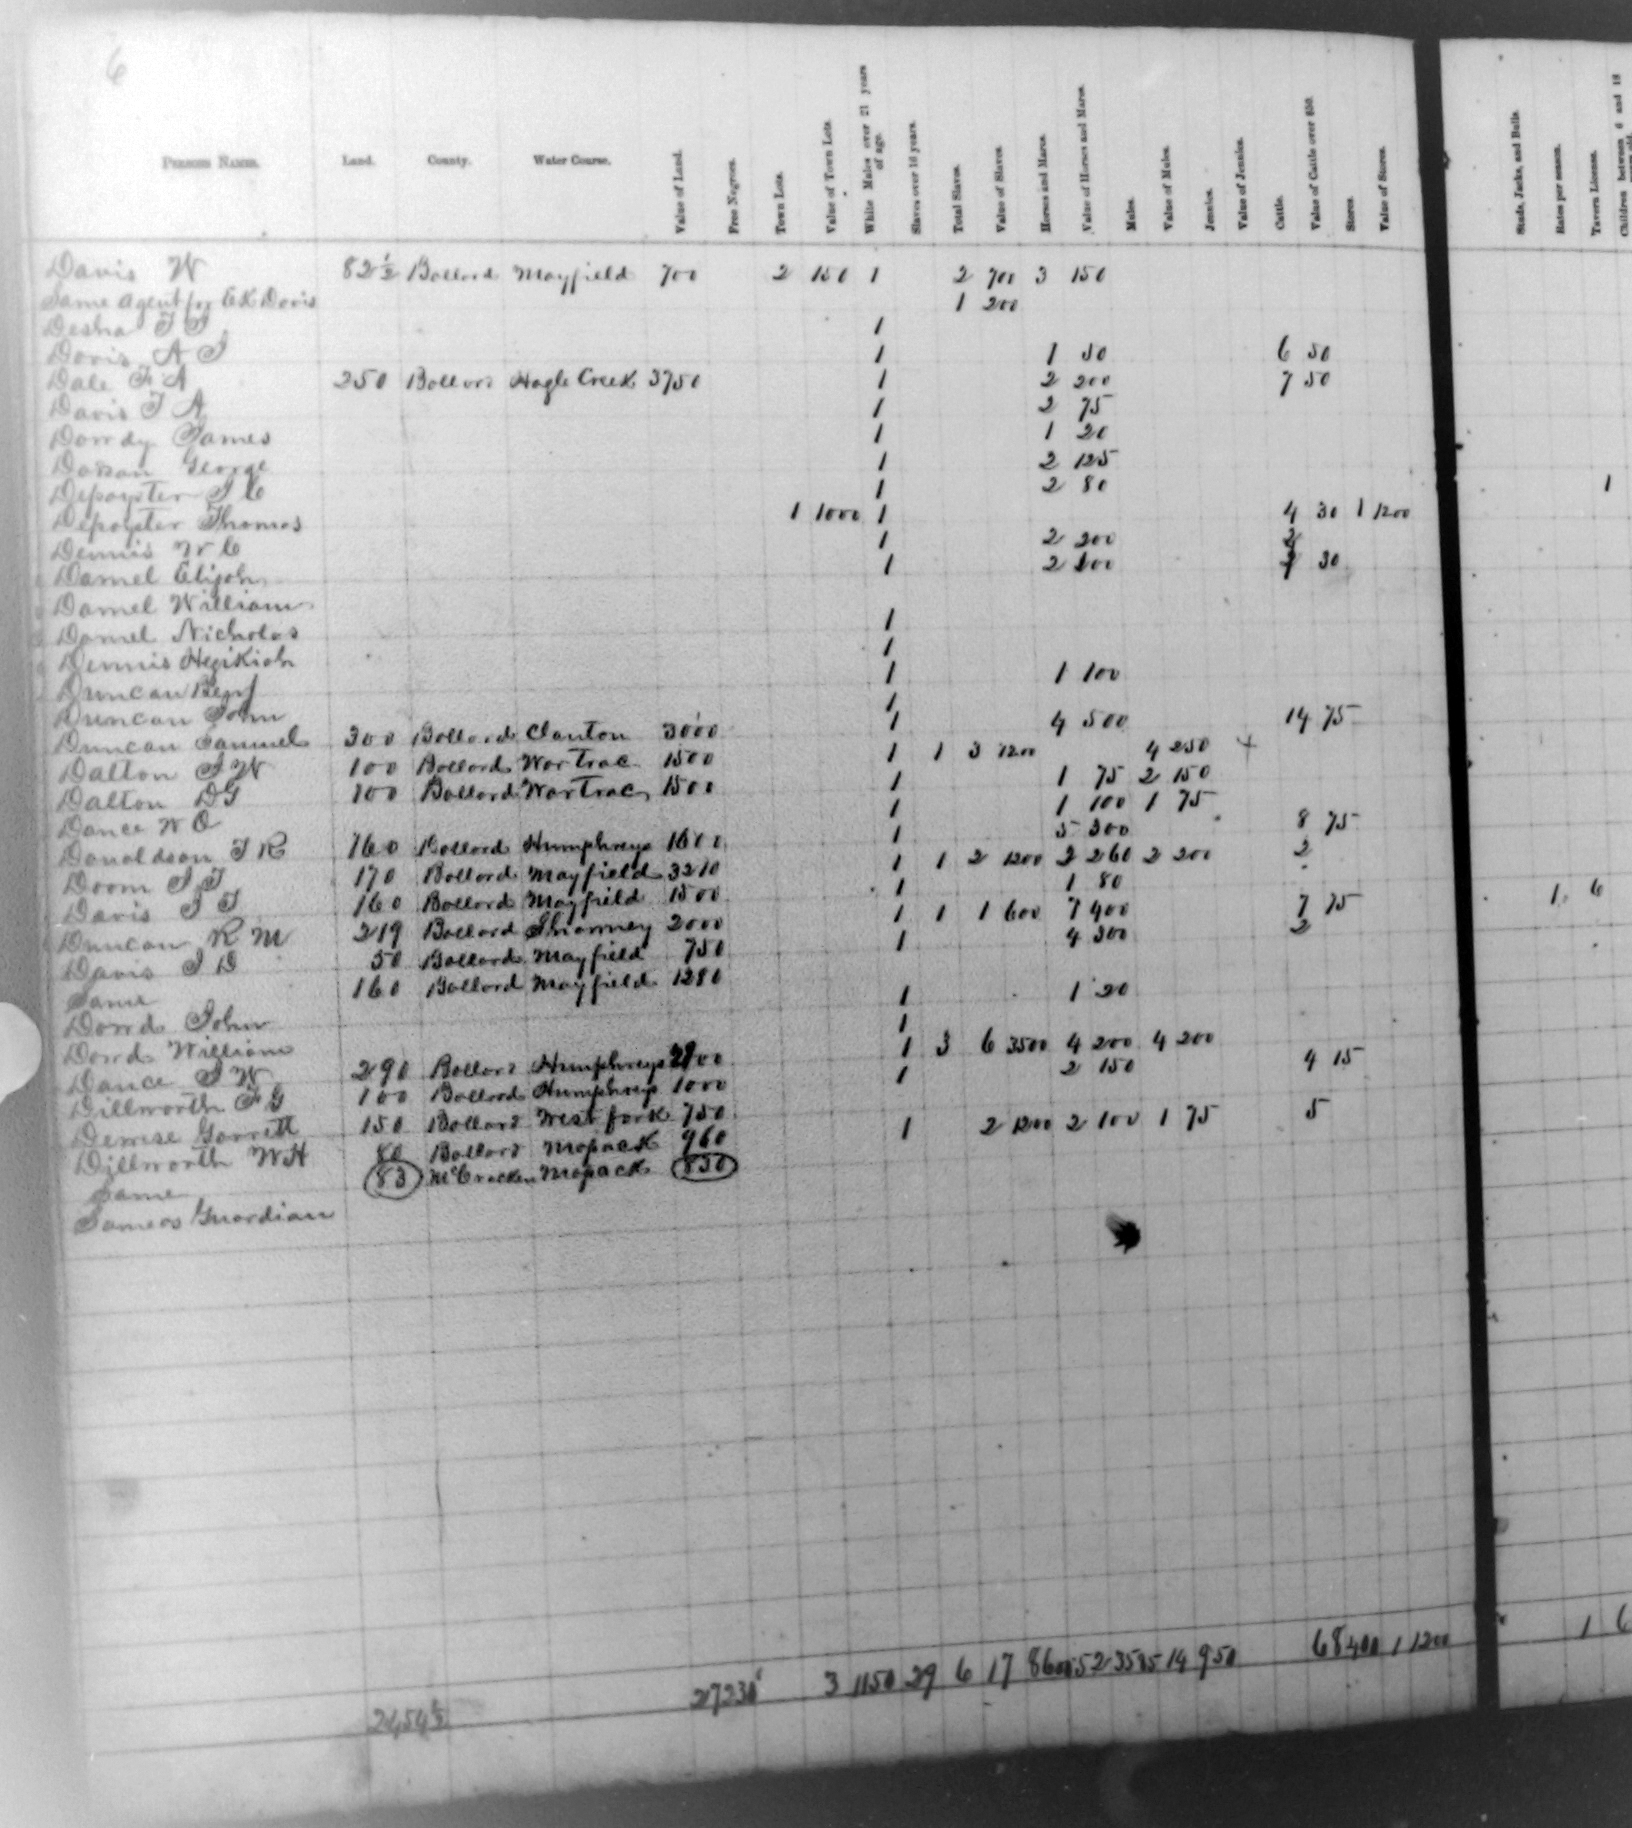 6
Persons Names. Land. County. Water Course. Value of Land. Free Negroes. Town Lots. Value of Town Lots. White Males over 21 years of age. Slaves over 16 years. Total Slaves. Value of Slaves. Horses and Mares. Value of Horses and Mares. Mules. Value of Mules. Jennies. Value of Jennies. Cattle. Value of Cattle over $50. Stores. Value of Stores. Studs, Jacks, and Bulls. Rates per season. Tavern License. Children between 6 and 18
Davis W 82 1/2 Ballard Mayfield 700 2 150 1 2 700 3 150
Same agent for Davis 1 200
Desha 1
Davis A J 1 1 50 6 50
Dale F A 250 Ballard Hagle Creek 3750 1 2 200 7 50
Davis J A 1 2 75
Dowdy James 1 1 20
George 1 2 125
Depoyster J C 1 2 80
Depoyster Thomas 1 1000 1 4 30 1 1200 1
Dennis W C 1 2 200 2
Daniel Elijah 1 2 100 30
Daniel William
Daniel Nicholas 1
Dennis Hezikiah 1
Duncan Benj 1 1 100
Duncan John 1
Duncan Samuel 300 Ballard Clanton 3000 1 4 500 14 75
Dalton J W 100 Ballard War Trac 1500 1 1 3 1200 4 250 +
Dalton D G 100 Ballard War Trac 1500 1 1 75 2 150
Dance W O 1 1 100 1 75
Donaldson J R 160 Ballard Humphreys 1600 1 5 300 8 75
Doom J J 170 Ballard Mayfield 3210 1 1 2 1200 2 260 2 200 2
Davis J J 160 Ballard Mayfield 1500 1 1 80
Duncan R M 219 Ballard 2000 1 1 1 600 7 400 7 75 1. 6
Davis J D 50 Ballard Mayfield 750 1 4 300 2
Same 160 Ballard Mayfield 1280
Dowd John 1 1 20
Dowd William 1
Dance J W 290 Ballard Humphreys 2900 1 3 6 3500 4 200 4 200
Dillworth F G 100 Ballard Humphreys 1000 1 2 150 4 15
Garrett 150 Ballard West fork 750
Dillworth W H 80 Ballard Mapack 960 1 2 1200 2 100 1 75 5
Same 83 McCracken Mapack 830
Same as Guardian
2454 1/2 27230 3 1150 29 6 17 8600 52 3535 14 950 68 400 1 1200 1 6